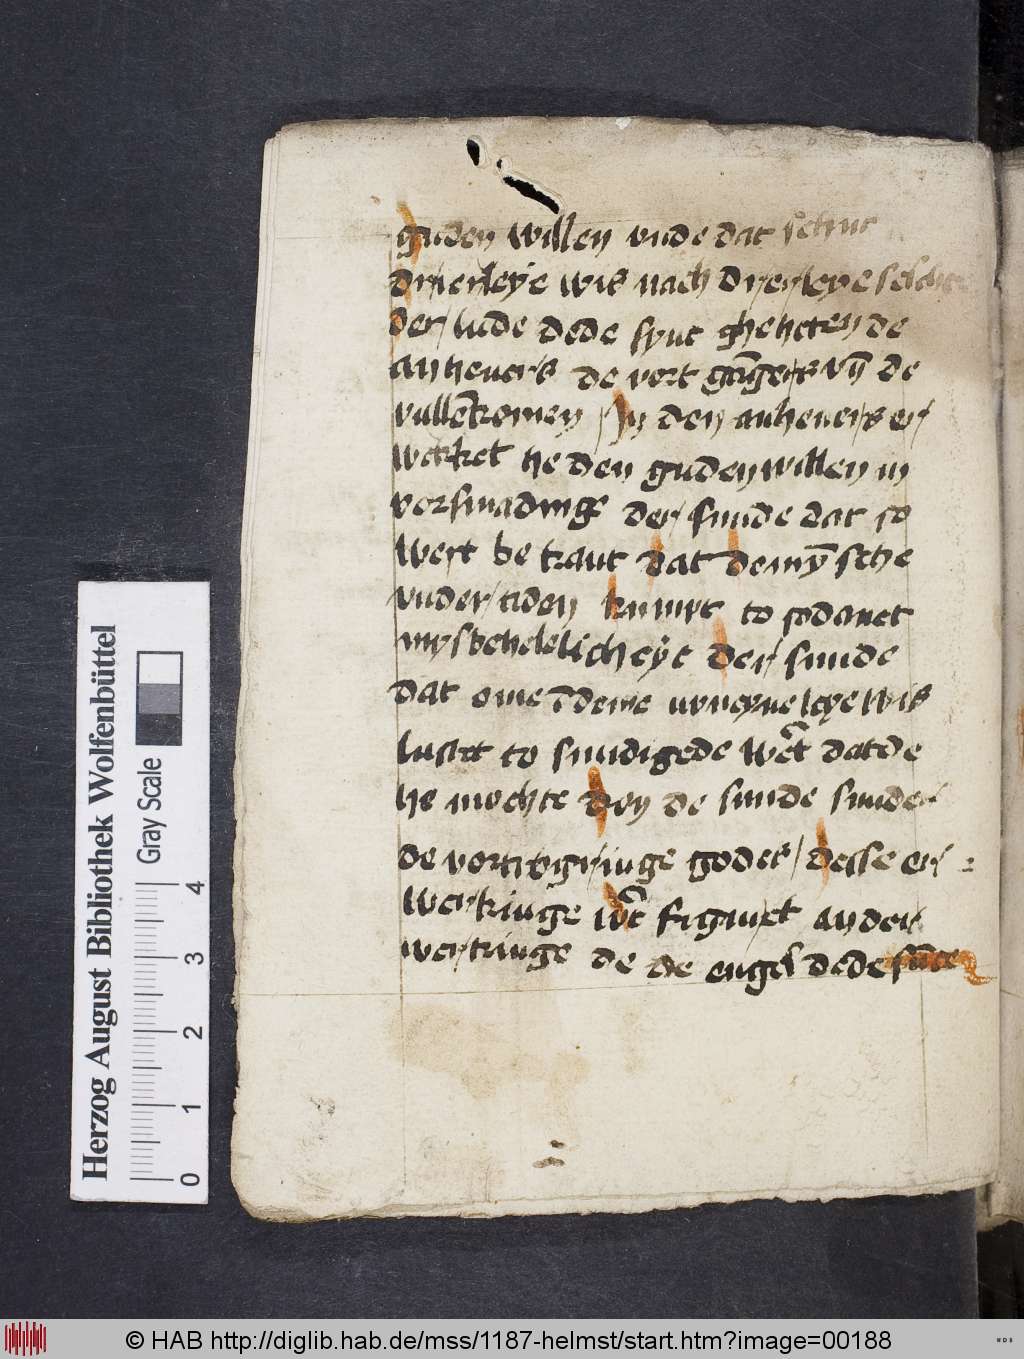 guden willen vnde dat schut
drierleye wis nach drierleye
der lude dede synt gheheten de
anheuers de vort genger vn̄ de
vullekomen / In den anheuers er/
wecket he den guden willen in
vorsmadinge der sunde dat so
wert be kant dat de mȳsche
vnder tiden kumpt to sodaner
mysbehelelicheyt der sunde
dat ome
lustet to sundigede wēt dat de
he mochte don de sunde sunder
de vortorginge godes / desse er/
werkinge wēt andere
werkinge de de engel dede
Herzog August Bibliothek Wolfenbüttel
Gray Scale
0 1 2 3 4
© HAB http://diglib.hab.de/mss/1187-helmst/start.htm?image=00188